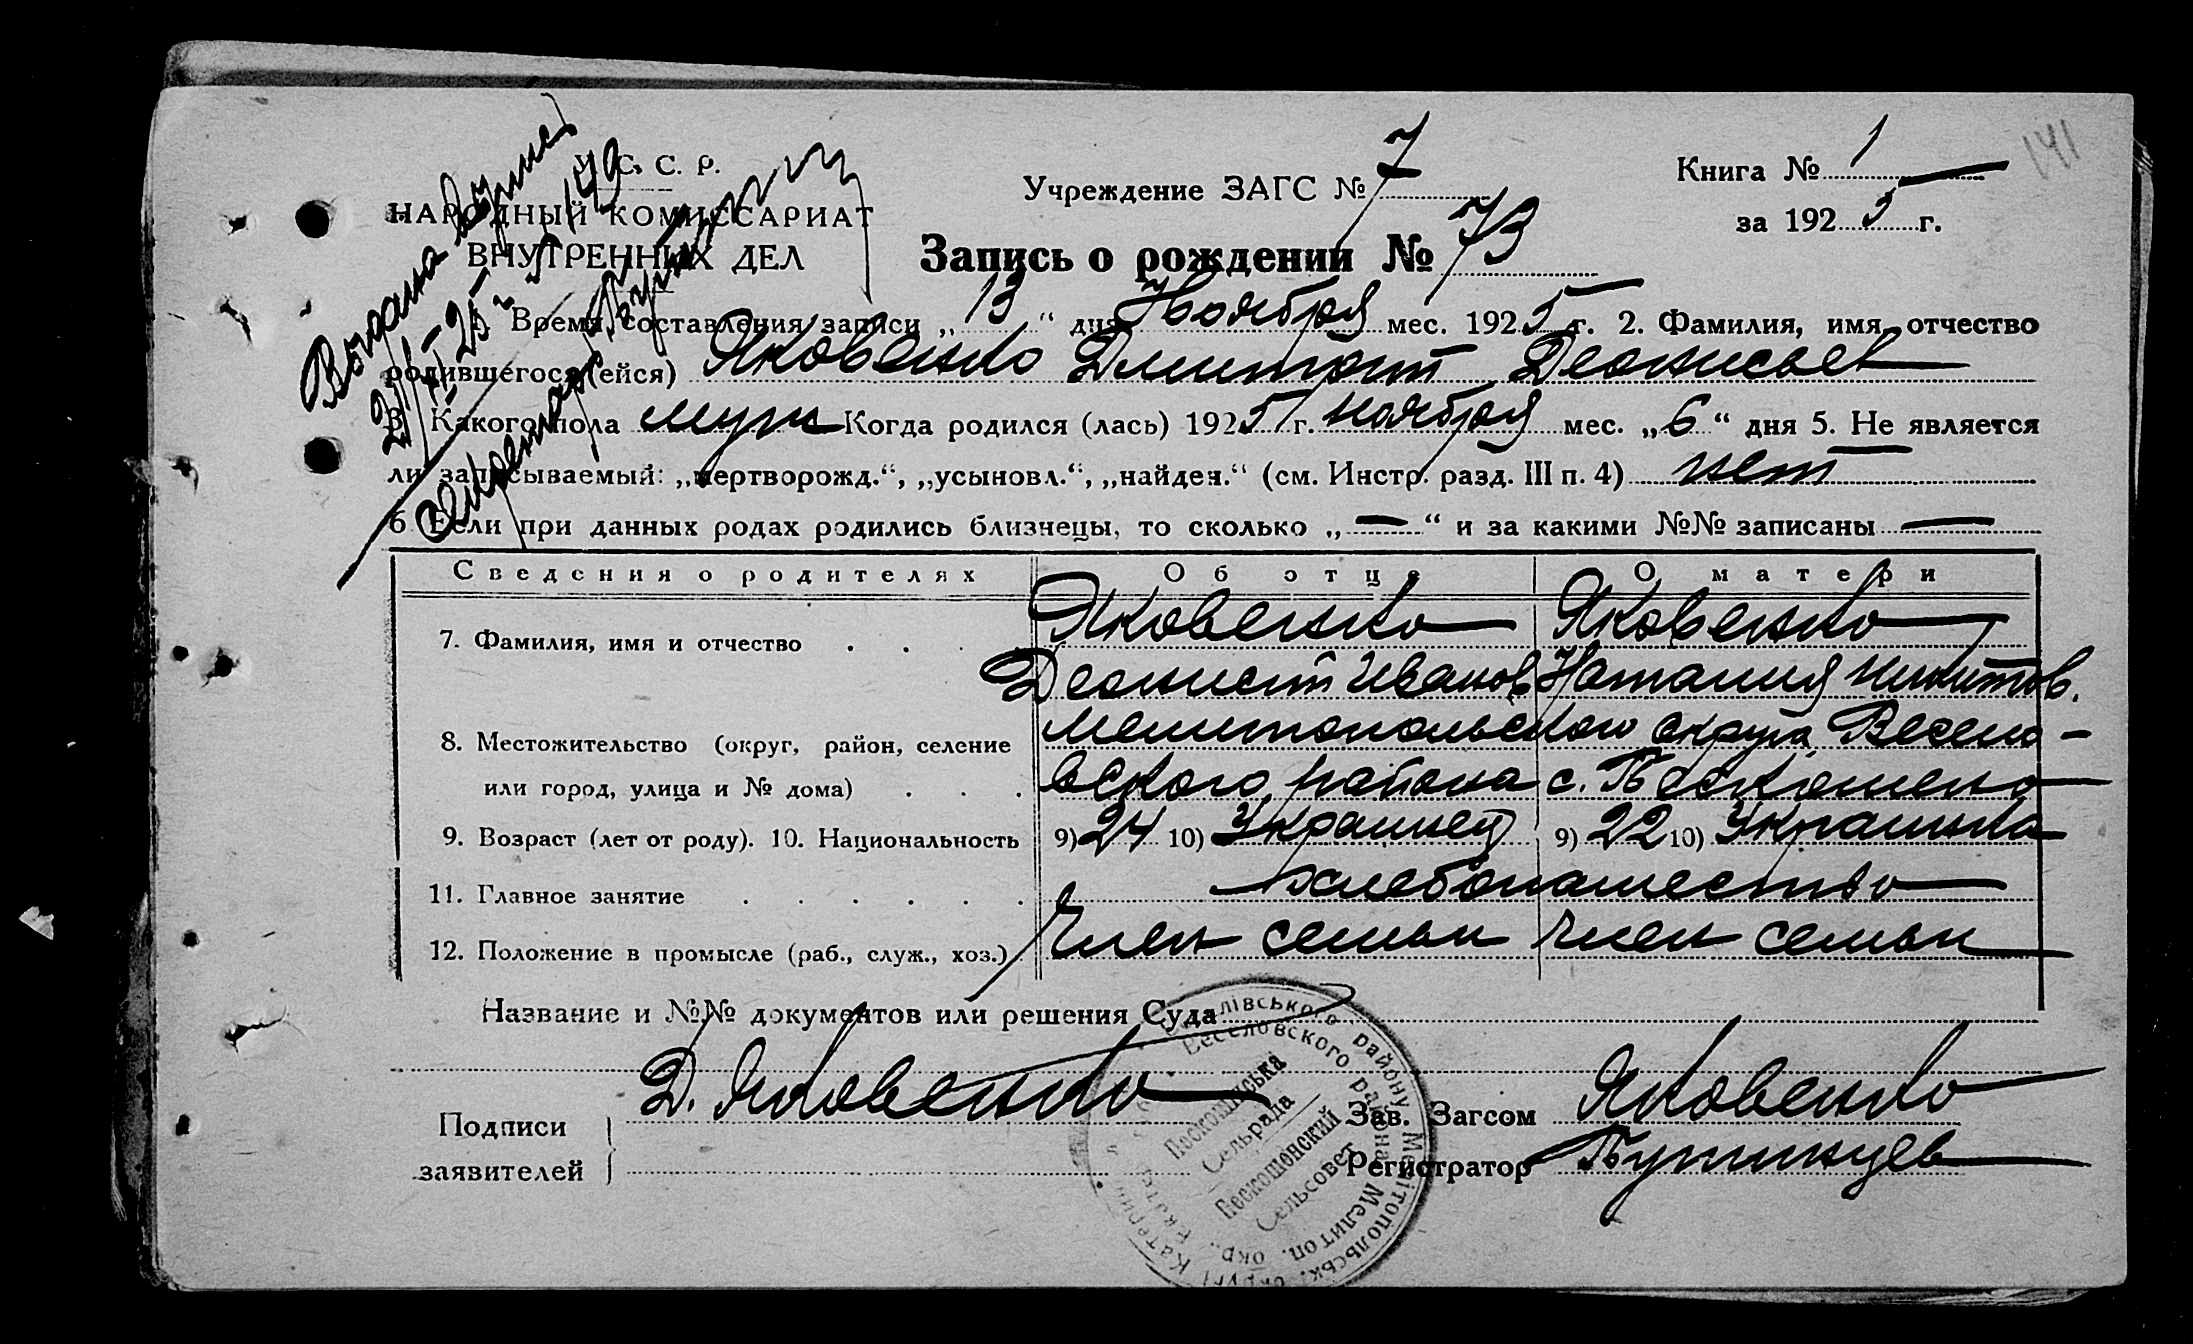 У. С. С. Р.
НАРОДНЫЙ КОМИССАРИАТ
ВНУТРЕННИХ ДЕЛ
Учреждение ЗАГС № 7
Книга № 1
141
за 1925 г.
Запись о рождении № 73
Выдана
Время составления записи „13“ дня Ноября мес. 1925 г. 2. Фамилия, имя, отчество
родившегося (ейся) Яковенко Дмитрий Деонисьев
3. Какого пола муж Когда родился (лась) 1925 г. ноября мес. „6“ дня 5. Не является
ли записываемый: „мертворожд.“, „усыновл.“, „найден.“ (см. Инстр. разд. III п. 4) нет
6. Если при данных родах родились близнецы, то сколько „—“ и за какими №№ записаны —
Сведения о родителях Об отце О матери
7. Фамилия, имя и отчество . . . Яковенко Яковенко
Деонисий Иванов Наталия Никитов.
8. Местожительство (округ, район, селение Мелитопольского округа Весело-
или город, улица и № дома) . . . вского района с. Пескошено
9. Возраст (лет от роду). 10. Национальность 9) 24 10) Украинец 9) 22 10) Украинка
11. Главное занятие . . . . . . хлебопашество
12. Положение в промысле (раб., служ., хоз.) . Член семьи Член семьи
Название и №№ документов или решения Суда
Подписи
заявителей
Д. Яковенко
Зав. Загсом Яковенко
Регистратор Путинцев
Веселівського району Мелітопольськ. округи Катерин
Веселовского района Мелитоп. окр. Екатер
Пескошинська
Сельрада
Пескошенский
Сельсовет